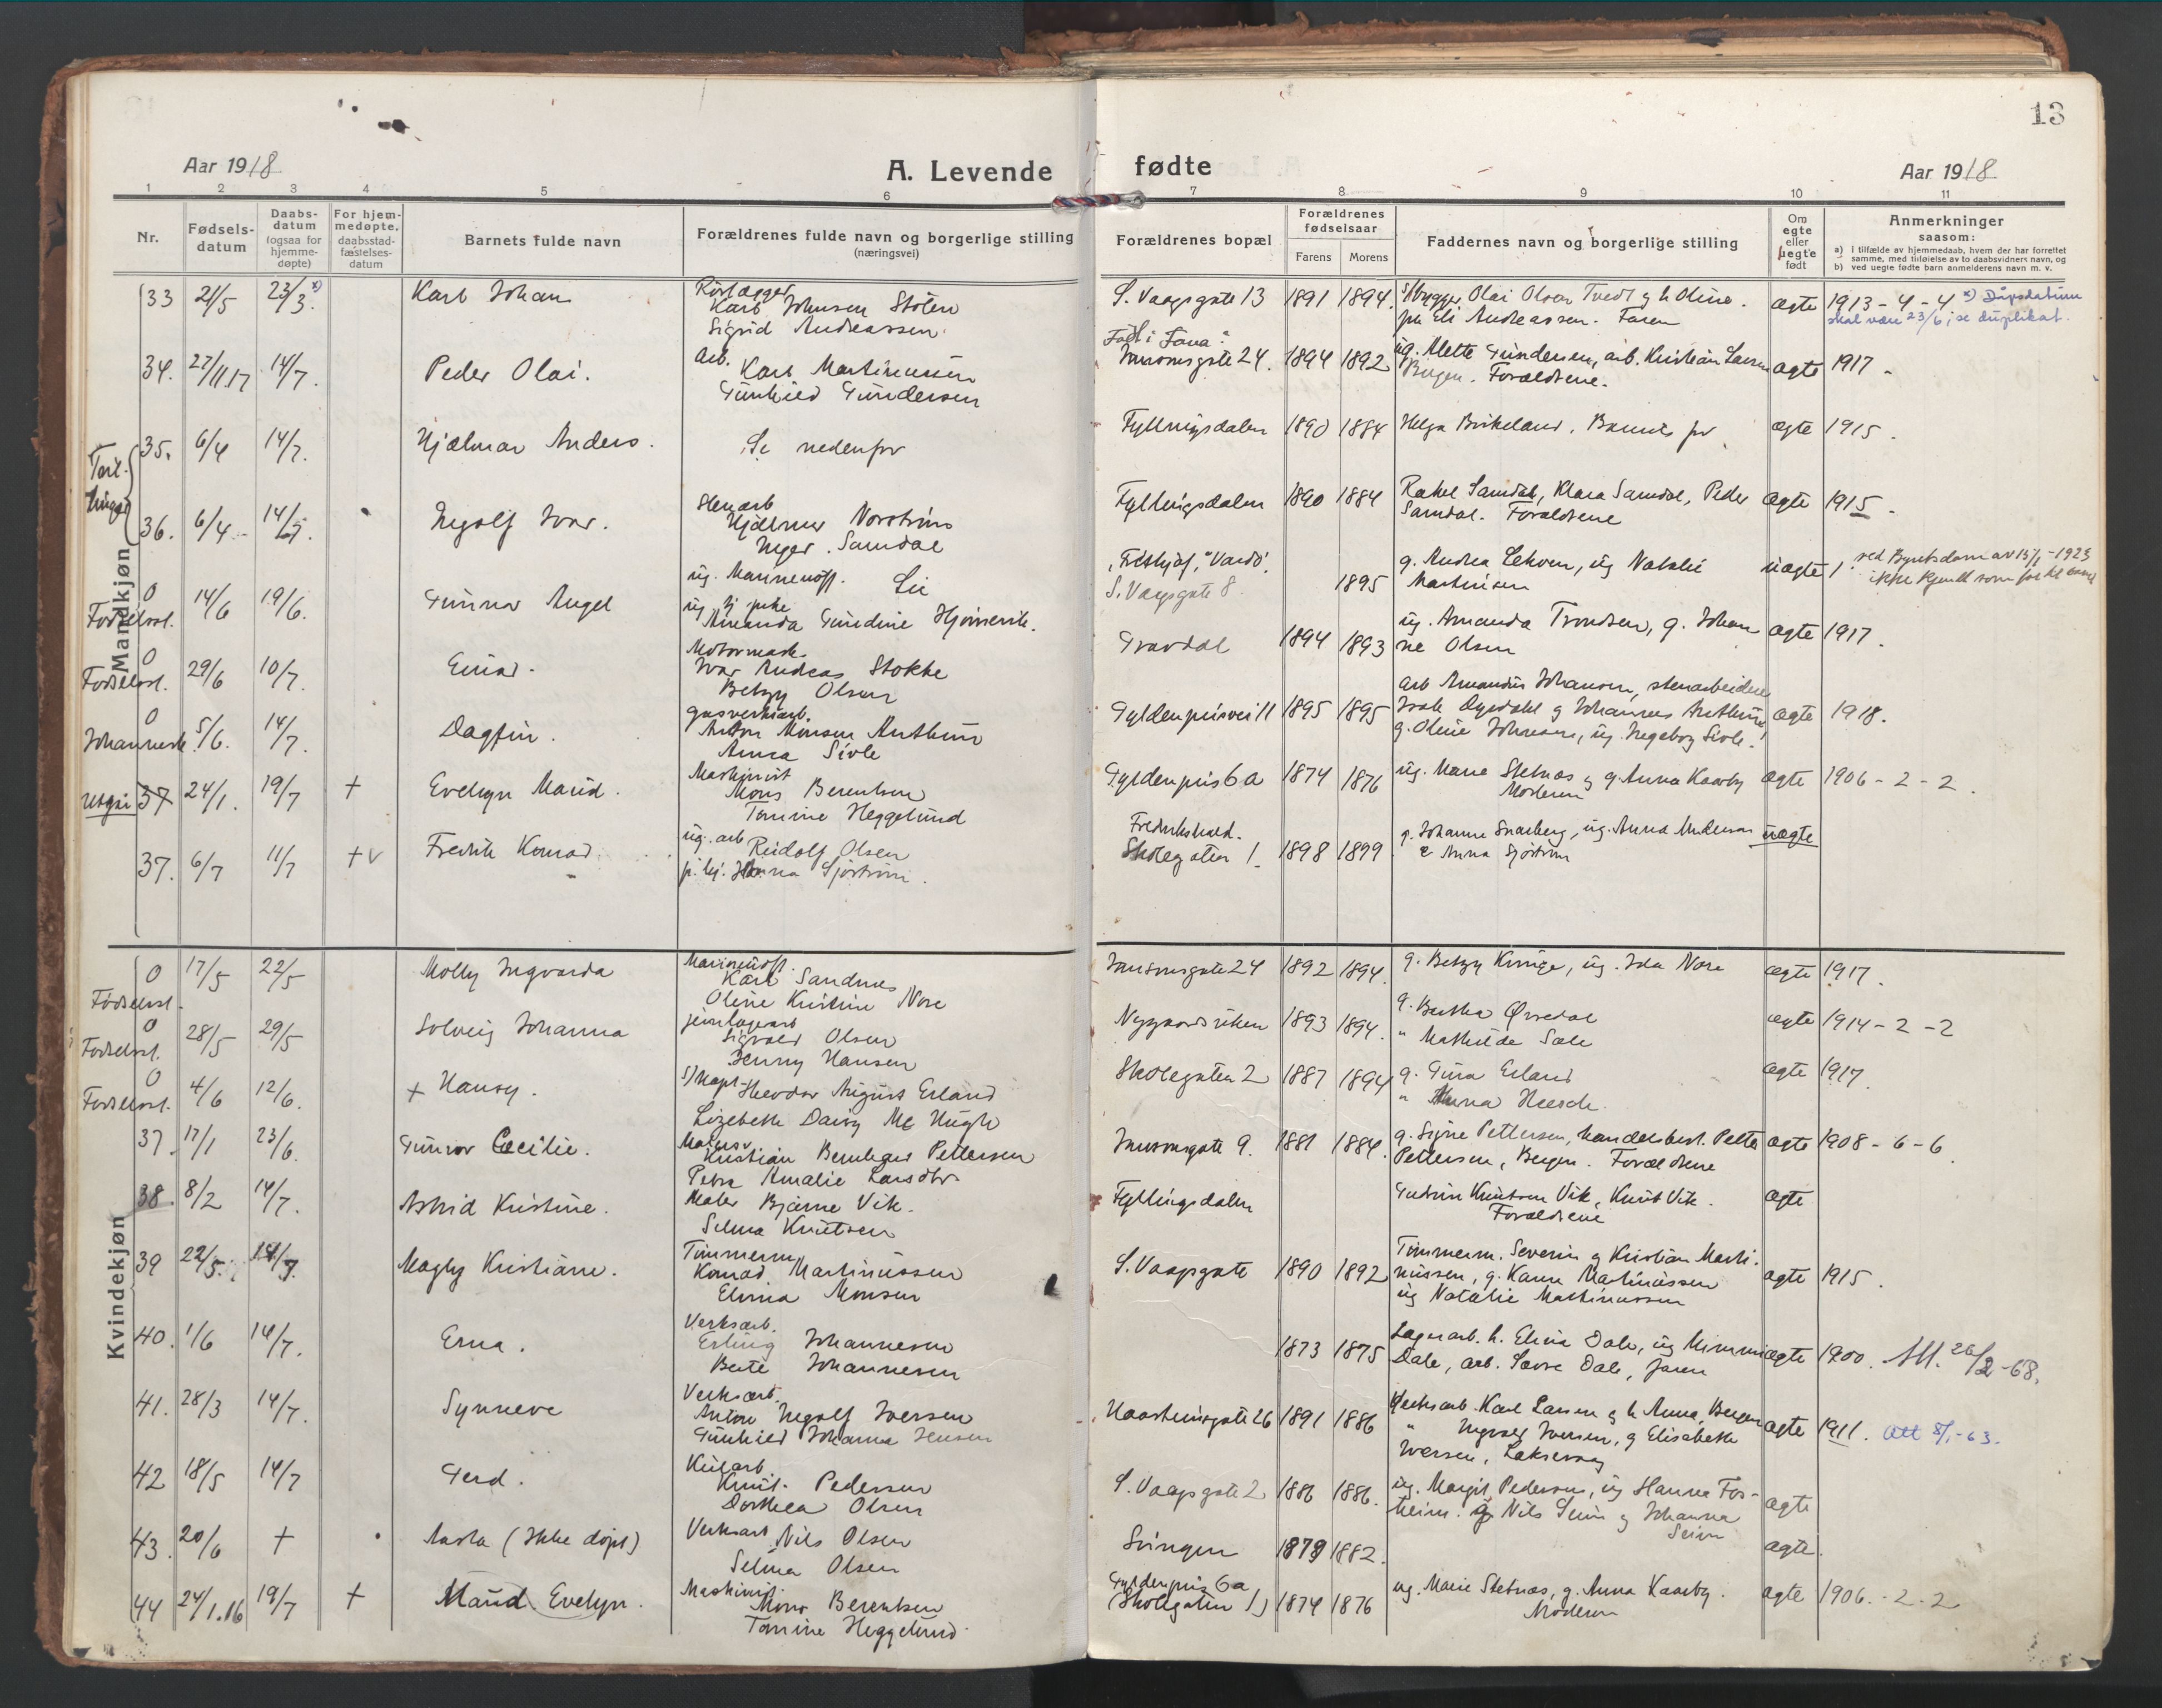 13
Aar 1918
A. Levende fødte
Aar 1918
1 2 3 4 5 6 7 8 9 10 11
Nr.
Fødsels-
datum
Daabs-
datum
(ogsaa for
hjemme-
døpte)
For hjem-
medøpte.
daabsstad-
fæstelses-
datum
Barnets fulde navn
Forældrenes fulde navn og borgerlige stilling
(næringsvei)
Forældrenes bopæl
Forældrenes
fødselsaar
Farens Morens
Faddernes navn og borgerlige stilling
Om
egte
eller
uegte
født
Anmerkninger
saasom:
a) I tilfælde av hjemmedaab, hvem der har forrettet
samme, med tilføielse av to daabsvidners navn, og
b) ved uegte fødte barn anmelderens navn m. v.
Mandkjøn
33 21/5 23/3. x) Karl Johan
Rørlægger
Karl Johnsen Stølen
Sigrid Andreassen.
S. Vaagsgate 13 1891 1894. Olai Olsen Tvedt g h Oline.
Eli Andreassen. Faren
ægte 1913-4-4 x) Dåpsdatum
skal være 23/6, se duplikat.
34. 27/11 17 14/7. Peder Olai.
Arb.
Karl Martinussen
Gunhild Gundersen
Født i Fana:
24. 1894 1892
ug. Mette Gundersen, arb. Kristian Larsen
Bergen. Forældrene.
ægte 1917.
35. 6/4 14/7. Hjalmar Anders.
Se nedenfor
Fyllingsdalen 1890 1884 Helga Birkeland, Barnes fv ægte 1915.
36. 6/4 14/7. Ingolf Ivar.
Stenarb
Hjalmar Norstrøm
Inger Samdal
Fyllingsdalen 1890 1884 Rakel Samdal, Klara Samdal, Peder
Samdal. Forældrene
ægte 1915.
0 Fødselsst. 14/6 19/6. Gunnar Angel
ug. Marineuoff. Lie
ug. hj. pike
Amanda Gundine
"Fridtjof", Vardø.
S. Vaagsgate 8. 1895
g. Andrea Lekven, ug Natalie
Martinsen
uægte 1.
ikke kjendt som far til barnet
0 Fødselsst. 29/6 10/7. Einar.
Motormask.
Ivar Andreas Stokke
Betzy Olsen
Gravdal 1894 1893
ug. Amanda Trondsen, g. Johan
ne Olsen
ægte 1917.
0 5/6. 14/7. Dagfin.
gasverksarb.
Anton Monsen
Anna Sivle
Gyldenprisvei 11 1895 1895
arb Amandus Johansen, stenarbeider
g Johannes
g. Oline Johnsen, ug. Ingeborg Sivle.
ægte 1918.
Utgår 37 24/1. 19/7 + Evelyn Maud.
Maskinist
Mons Berentsen
Tomine Heggelund
Gyldenpris 6a 1874 1876 ug. Marie Stetnæs g g. Anna Kaarby
Moderen
ægte 1906-2-2.
37. 6/7 11/7 + v Fredrik Konrad.
ug. arb
Reidolf Olsen
p. hj. Hanna Sjøstrøm.
Fredrikshald.
Skolegaten 1. 1898 1899
g. Johanne Snarberg, ug. Anna Andersen
& Anna Sjøstrøm
uægte
Kvindekjøn
0 Fødselsst. 17/5 22/5 Molly Ingvarda
Marineuoff.
Karl Sandnes
Oline Kristine Nore
24 1892 1894. g. Betzy Kringe, ug. Ida Nore ægte 1917.
0 Fødselsst. 28/5 29/5 Solveig Johanna
jernlagerarb
Sigvald Olsen
Jenny Hansen
Nygaardsviken 1893 1894.
g. Bertha Ørredal
" Mathilde Sæle
ægte 1914-2-2
0 Fødselsst. 4/6 12/6. + Hansy.
S/Kapt.
Theodor August Erland
Lizebeth Daisy Mc Hugh
Skolegaten 2 1887 1894
g. Gina Erland
" Anna Heesch.
ægte 1917.
37. 17/1 23/6. Gunvor Cecilie.
Kristian Bernhard Pettersen
Petra Amalie Larsdtr
9. 1881 1884.
g. Signe Pettersen, handelsbest. Petter
Pettersen, Bergen. Forældrene
ægte 1908-6-6.
38. 8/2 14/7. Astrid Kristine.
Maler Bjarne Vik.
Selma Knutsen
Fyllingsdalen
Gudrun Knutsen Vik, Knut Vik.
Forældrene
ægte
39 22/5. 14/7. Magly Kristiane.
Tømmerm.
Konrad Martinussen
Elvina Monsen
S. Vaagsgate 1890 1892
Tømmerm. Severin g Kristian Marti-
nussen, g. Karen Martinussen
ug Natalie Martinussen
ægte 1915.
40. 1/6 14/7. Erna.
Verksarb.
Erling Johannesen
Berte Johannesen
1873 1875
Lagerarb. h. Elvia Dale, ug Mimmi
Dale, arb. Lasse Dale, faren
ægte 1900. Att. 26/2-68.
41. 28/3 14/7. Synneve
Verksarb.
Anton Ingolf Iversen
Gunhild Johanna Jensen
26 1891 1886
Verksarb. Karl Larsen g h Anna, Bergen
" Ingvald Iversen, g Elisabeth
Iversen, Laksevaag
ægte 1911. Att 8/1-63.
42 18/5 14/7 Gerd.
Kularb.
Knut. Pedersen
Dorthea Olsen
S. Vaagsgate 2 1886 1886.
ug. Margit Pedersen, ug Hanna Fos-
heim. g Nils Seim g Johanna
Seim
ægte
43. 20/6 + Aasta (Ikke døpt)
Verksarb Nils Olsen
Selma Olsen
Svingen 1879 1882. ægte.
44 24/1.16 19/7 + Maud Evelyn.
Maskinist
Mons Berentsen
Tomine Heggelund.
Gyldenpris 6a
(Skolegaten 1) 1874 1876
ug. Marie Stetnæs, g. Anna Kaarby.
Moderen
ægte 1906.-2-2